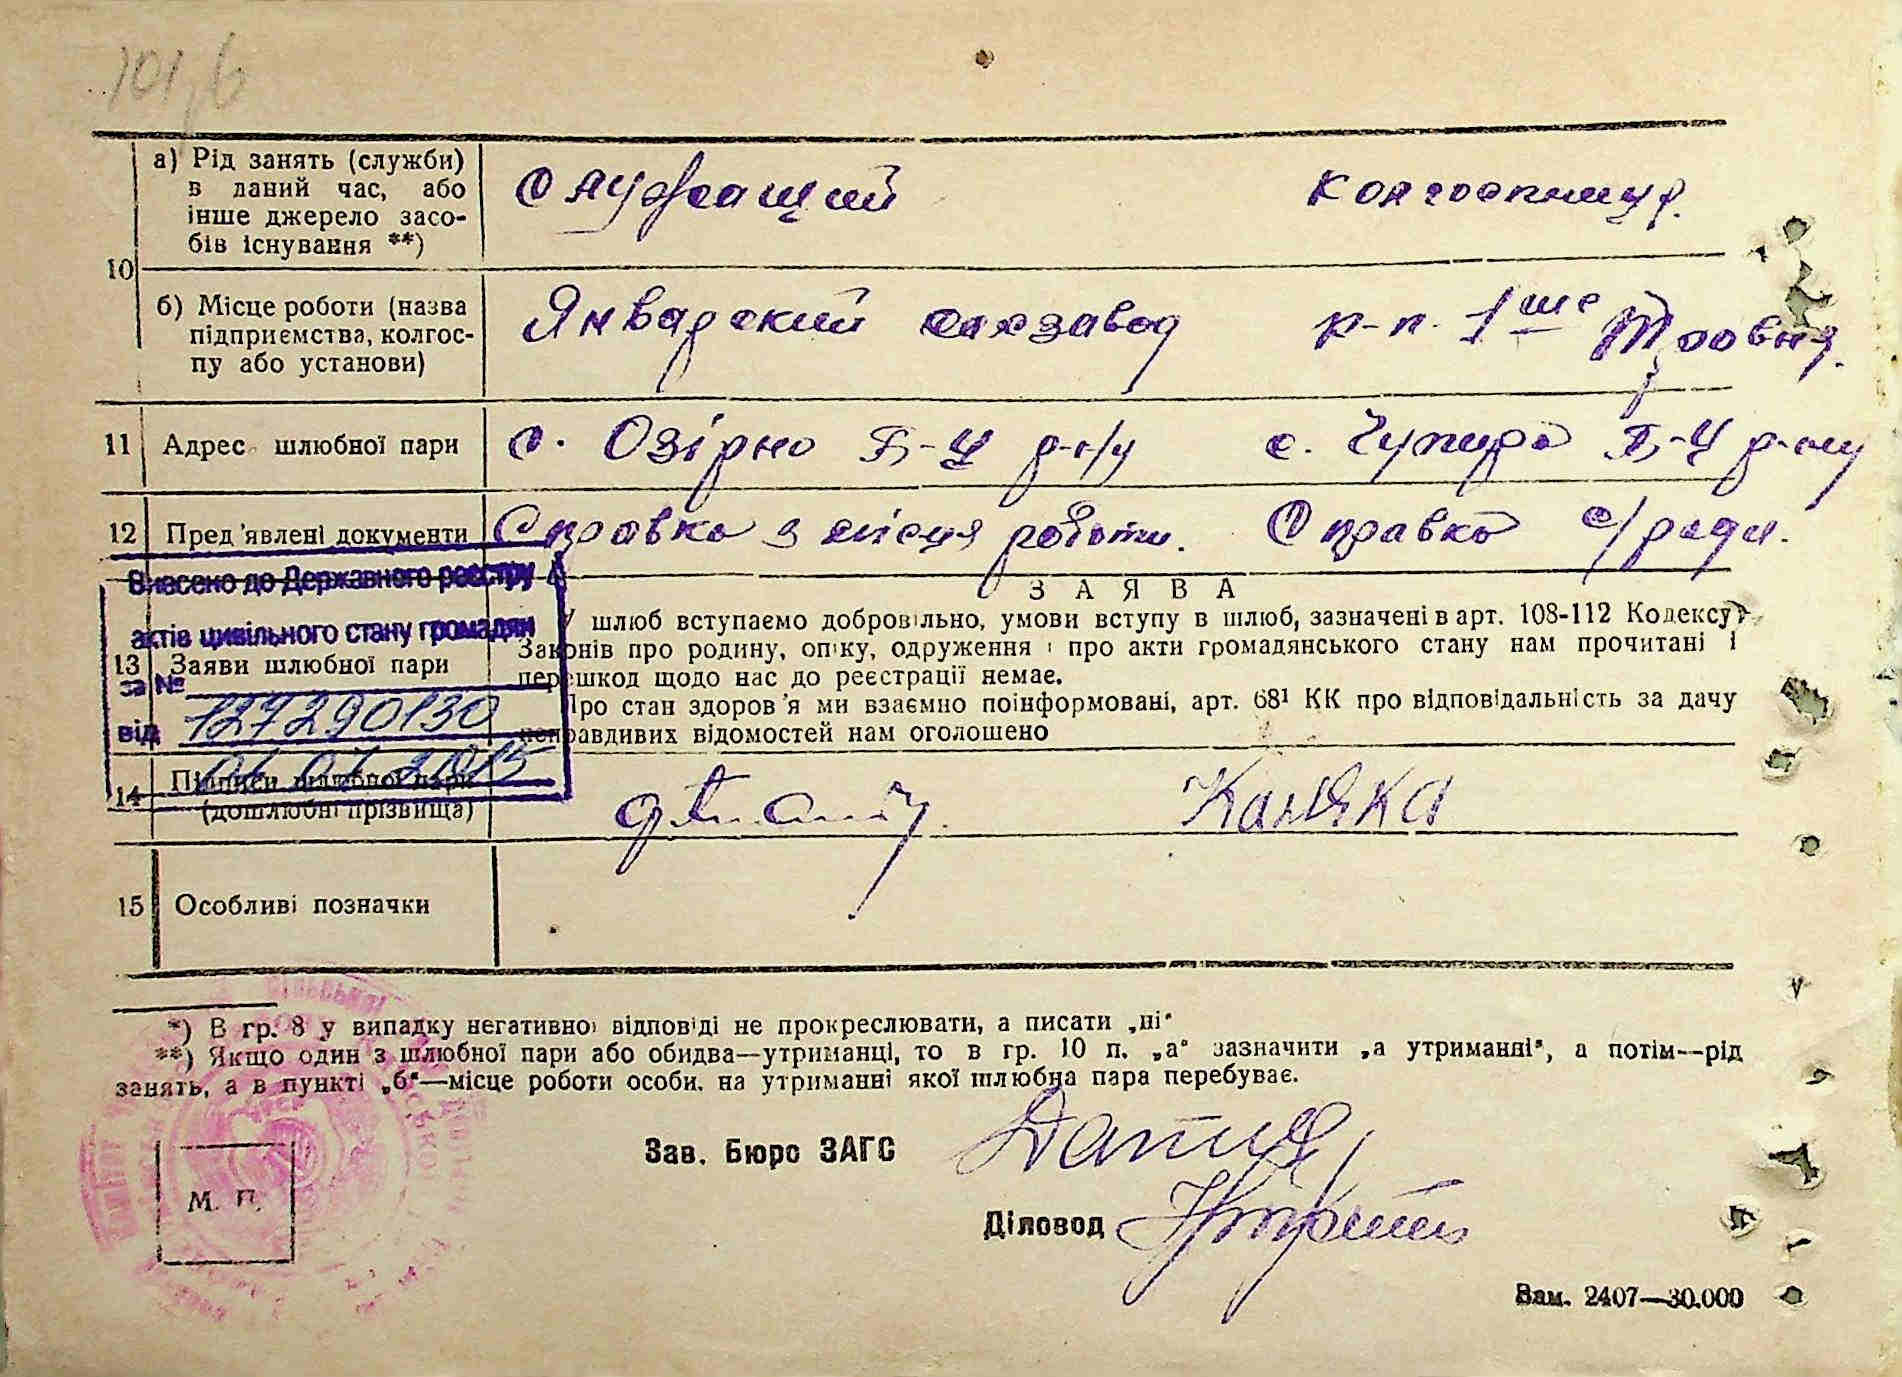 101,б
а) Рід занять (служби)
в даний час, або
інше джерело засо-
бів існування **)
Служащий
колгоспниця.
10
б) Місце роботи (назва
підприємства, колгос-
пу або установи)
Январский сахзавод
к-п. 1ше Травня.
11 Адрес шлюбної пари
с. Озірно Б-Ц р-ну
с. Чупира Б-Ц р-ну
12 Пред'явлені документи
Справка з місця роботи.
Справка с/ради.
Внесено до Державного реєстру
актів цивільного стану громадян
за №
127290130
від
2015
13 Заяви шлюбної пари
ЗАЯВА
У шлюб вступаємо добровільно, умови вступу в шлюб, зазначені в арт. 108-112 Кодексу
Законів про родину, опіку, одруження і про акти громадянського стану нам прочитані і
перешкод щодо нас до реєстрації немає.
Про стан здоров'я ми взаємно поінформовані, арт. 68¹ КК про відповідальність за дачу
неправдивих відомостей нам оголошено
14 Підписи шлюбної пари
(дошлюбні прізвища)
Каляка
15 Особливі позначки
*) В гр. 8 у випадку негативної відповіді не прокреслювати, а писати „ні"
**) Якщо один з шлюбної пари або обидва—утриманці, то в гр. 10 п. „а" зазначити „а утриманні", а потім—рід
занять, а в пункті „б"—місце роботи особи, на утриманні якої шлюбна пара перебуває.
Зав. Бюро ЗАГС
М. П.
Діловод
Зам. 2407—30.000